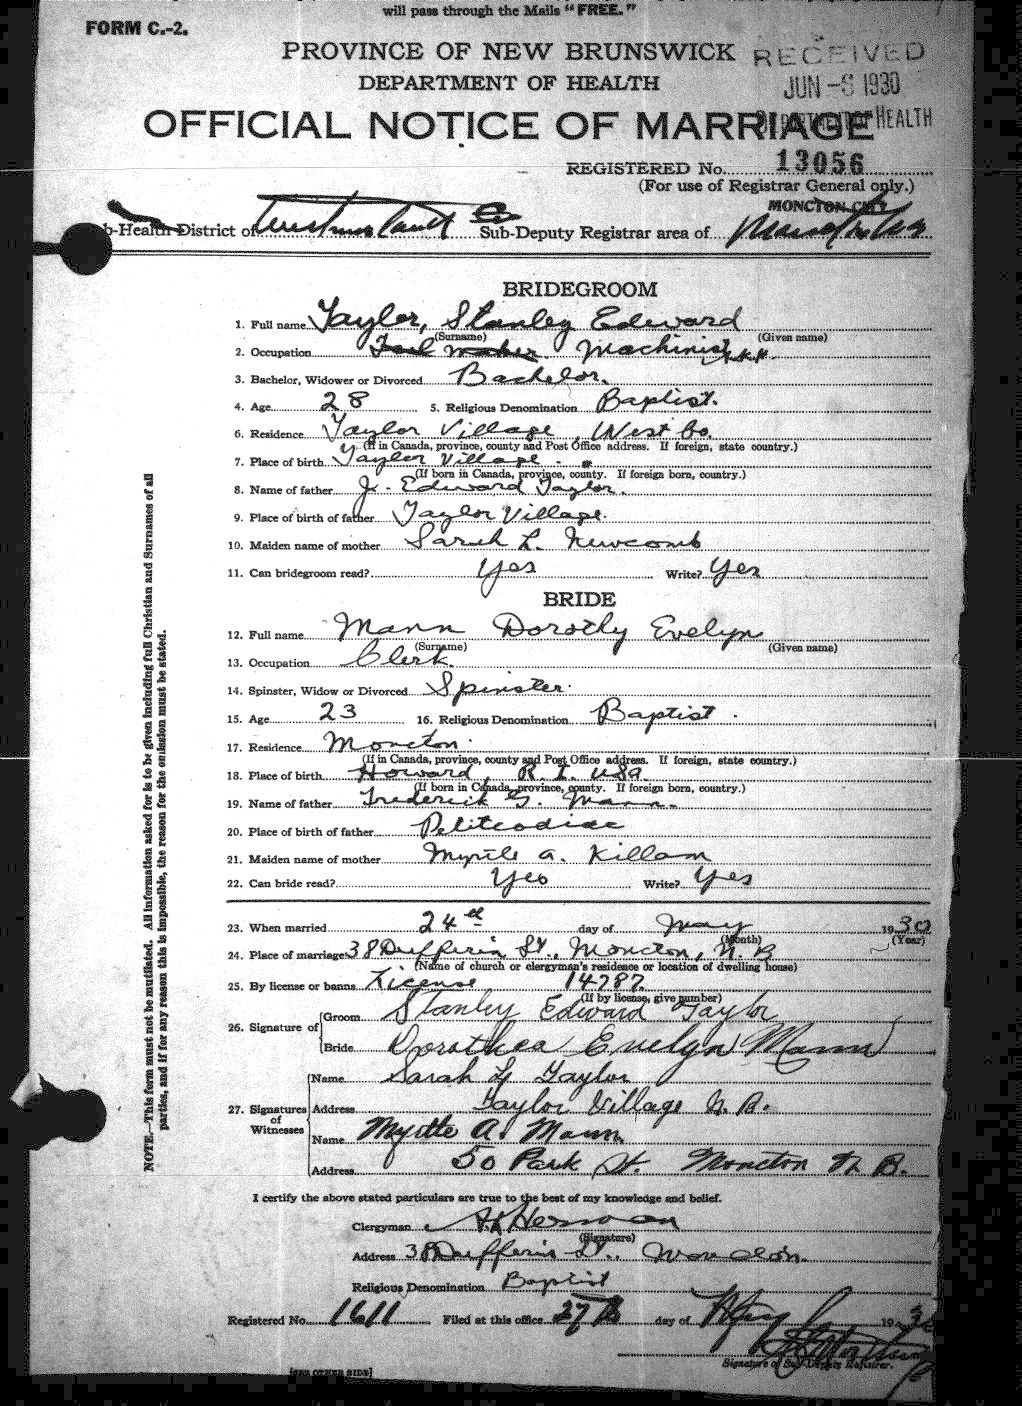 will pass through the Mails "FREE."
FORM C.-2.
PROVINCE OF NEW BRUNSWICK
RECEIVED
DEPARTMENT OF HEALTH
JUN -6 1930
OFFICIAL NOTICE OF MARRIAGE
DEPARTMENT OF HEALTH
REGISTERED No. 13056
(For use of Registrar General only.)
MONCTON CITY
b-Health District of Westmorland Sub-Deputy Registrar area of
BRIDEGROOM
1. Full name Taylor, Stanley Edward
(Surname) (Given name)
2. Occupation Machinist
3. Bachelor, Widower or Divorced Bachelor.
4. Age 28 5. Religious Denomination Baptist.
6. Residence Taylor Village, West Co.
(If in Canada, province, county and Post Office address. If foreign, state country.)
7. Place of birth Taylor Village.
(If born in Canada, province, county. If foreign born, country.)
8. Name of father J. Edward Taylor.
9. Place of birth of father Taylor Village.
10. Maiden name of mother Sarah L. Newcomb
11. Can bridegroom read? Yes Write? Yes
BRIDE
12. Full name Mann Dorothy Evelyn
(Surname) (Given name)
13. Occupation Clerk.
14. Spinster, Widow or Divorced Spinster.
15. Age 23 16. Religious Denomination Baptist.
17. Residence Moncton.
(If in Canada, province, county and Post Office address. If foreign, state country.)
18. Place of birth Howard, R.I. USA.
(If born in Canada, province, county. If foreign born, country.)
19. Name of father Frederick G. Mann.
20. Place of birth of father Petitcodiac
21. Maiden name of mother Myrtle A. Killam
22. Can bride read? Yes Write? Yes
23. When married 24th day of May 1930
(Month) (Year)
24. Place of marriage 38 Dufferin St., Moncton, N.B
(Name of church or clergyman's residence or location of dwelling house)
25. By license or banns License 14787
(If by license, give number)
26. Signature of Groom Stanley Edward Taylor
Bride Dorothea Evelyn Mann
27. Signatures of Witnesses
Name Sarah L Taylor
Address Taylor Village N.B.
Name Myrtle A. Mann
Address 50 Park St. Moncton N.B.
I certify the above stated particulars are true to the best of my knowledge and belief.
Clergyman
(Signature)
Address 38 Dufferin St., Moncton.
Religious Denomination Baptist
Registered No. 1611 Filed at this office 27th day of May 1930
Signature of Sub-Deputy Registrar.
[SEE OTHER SIDE]
NOTE.—This form must not be mutilated. All information asked for is to be given including full Christian and Surnames of all
parties, and if for any reason this is impossible, the reason for the omission must be stated.